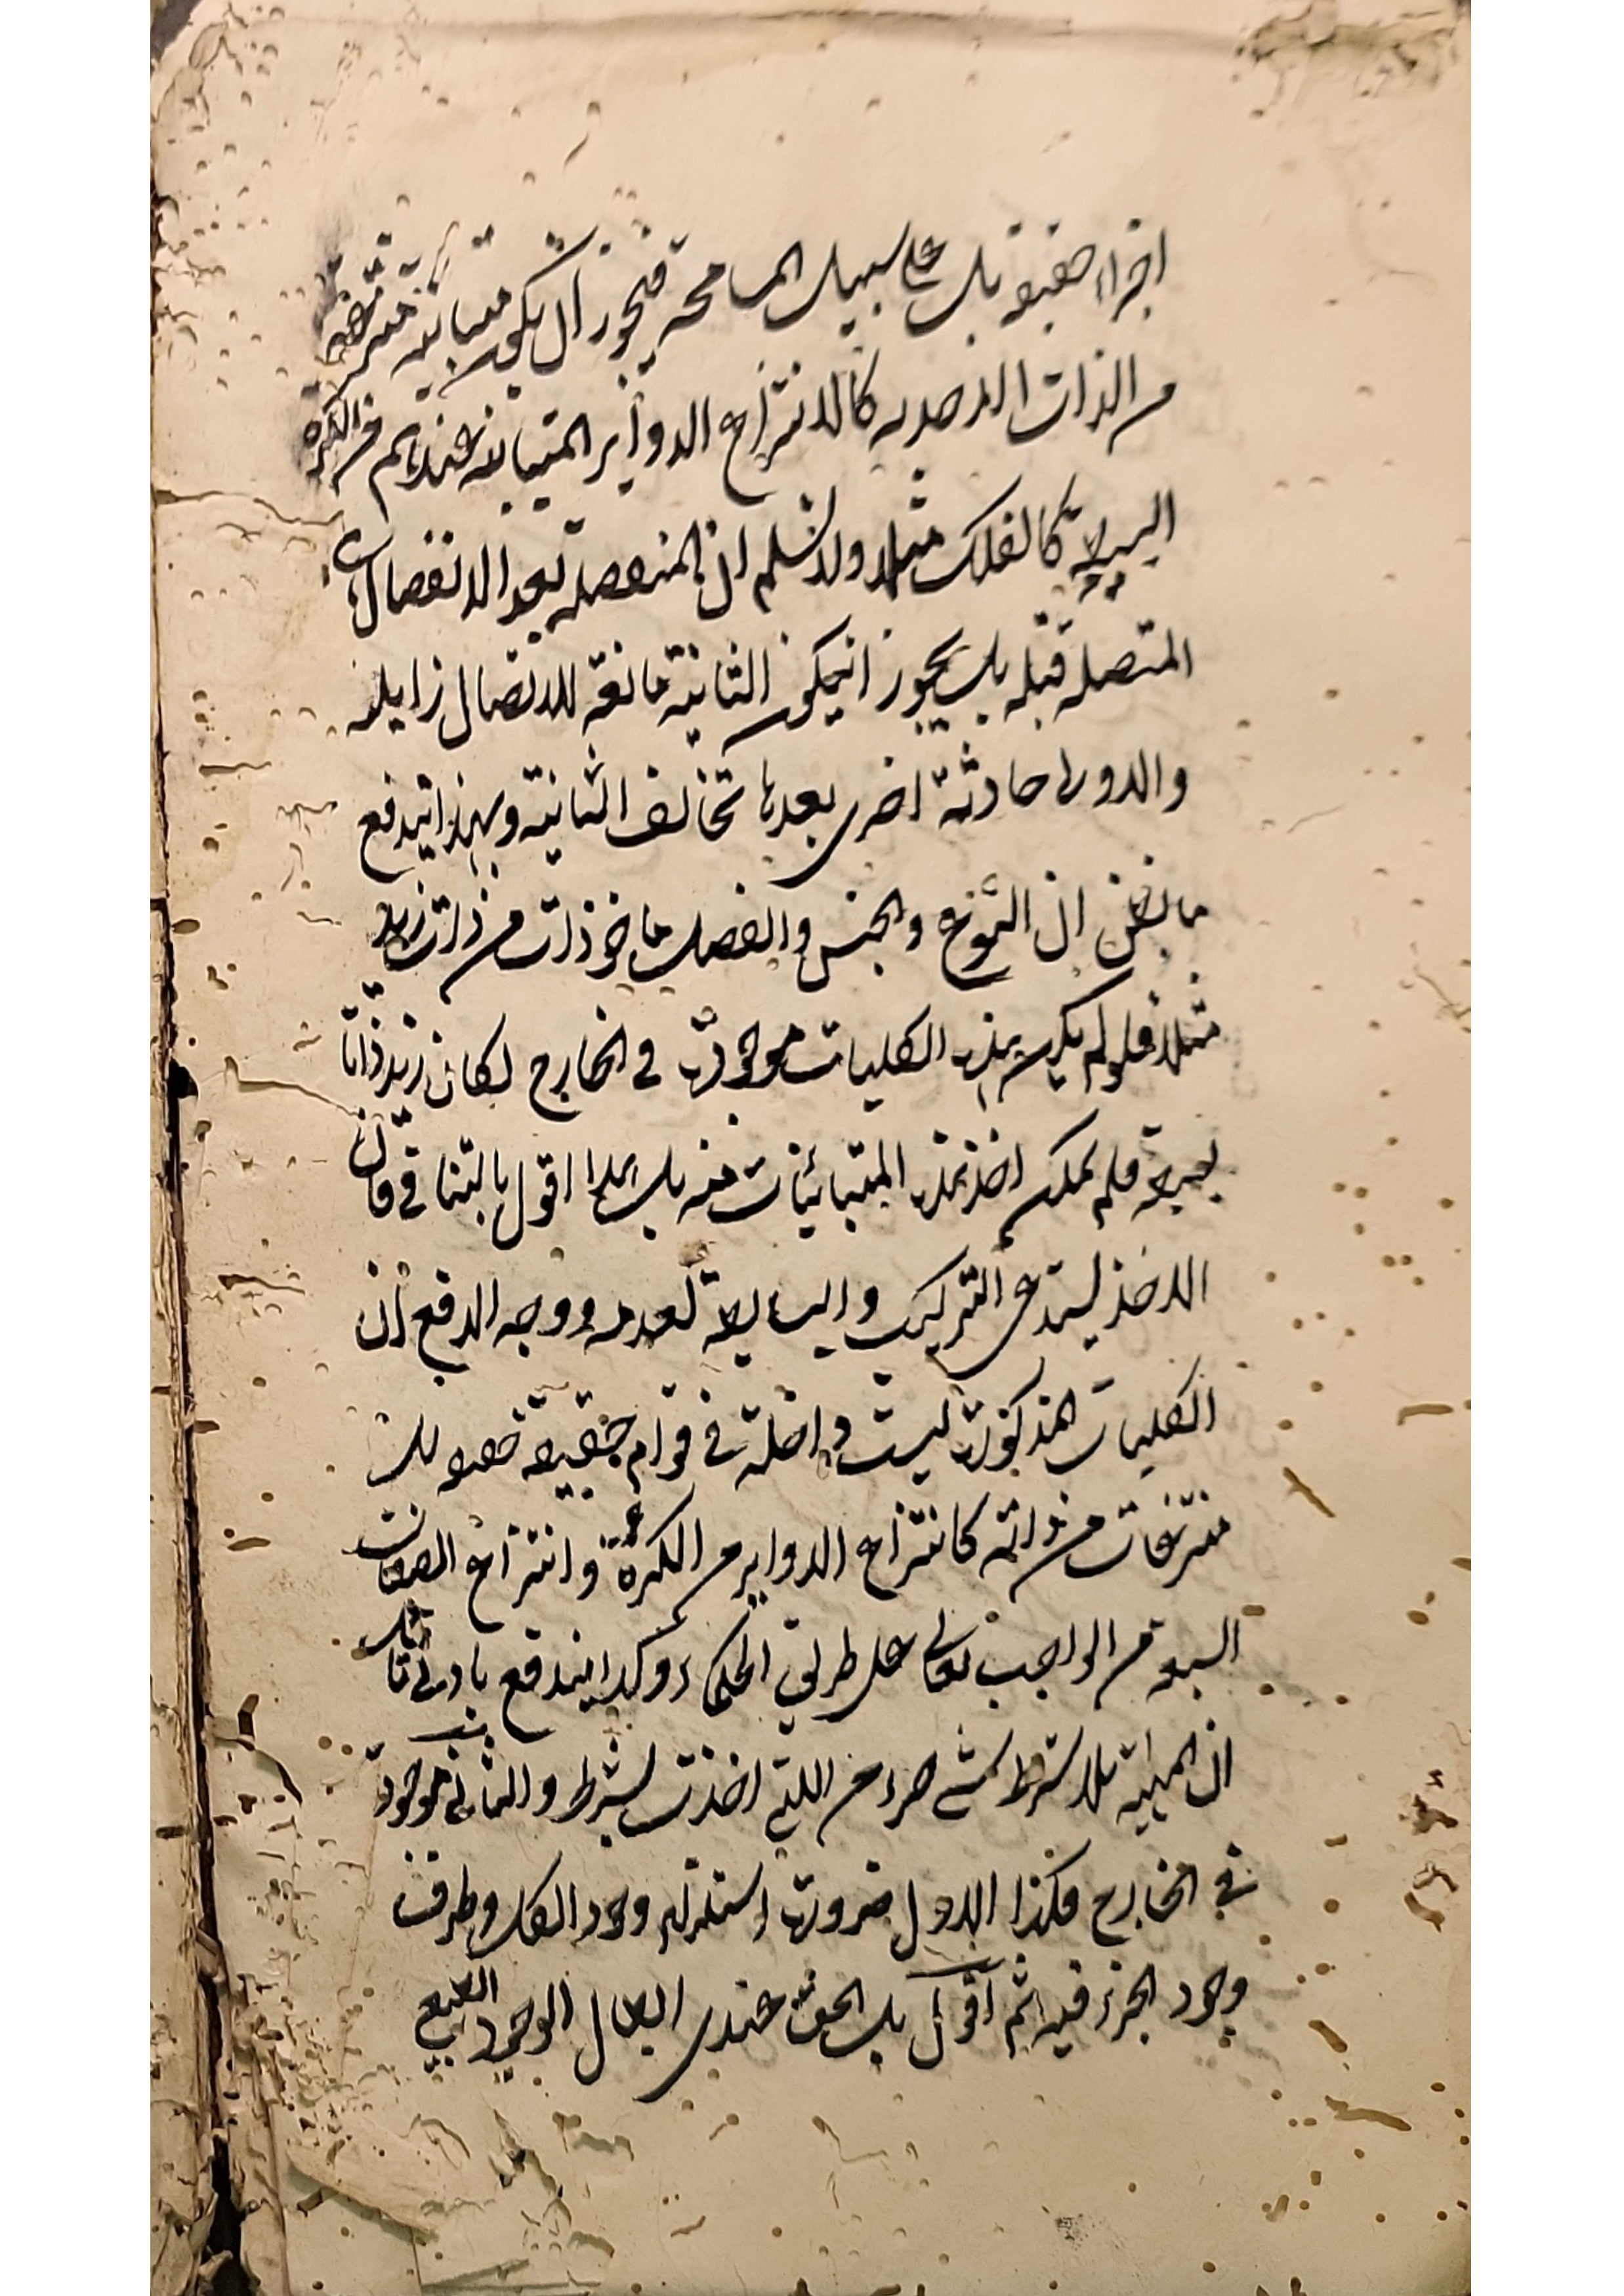 اجزاء حقيقة بل على سبيل المسامحة فيجوز ان يكون متباينة منتزعة
من الذات الاحدية كالانتزاع الدوائر المتباينة عندهم من الكرة
البسيطة كالفلك مثلا ولا نسلم ان المنفصلة بعد الانفصال
المتصلة قبله بل يجوز انيكون الثانية مانعة للاتصال زايلة
والاولى حادثة اخرى بعدها تخالف الثانية وبهذا يندفع
ما يظن ان النوع والجنس والفصل ماخوذات من ذات زيد
مثلا فلو لم يكن هذه الكليات موجودة في الخارج لكان زيد ذاتا
بسيطة فلم يمكن اخذ هذه المتباينات منه بل هذا اقول بالتنافي فان
الاخذ يستدعي التركيب والبساطة لعدمه ووجه الدفع ان
الكليات المذكورة ليست داخلة في قوام حقيقة بل
منتزعات من ذاته كانتزاع الدواير من الكرة وانتزاع الصفات
السبعة من الواجب تعالى على طريق الحكماء وكذا يندفع بادنى تامل
ان المهية بلا شرط شئ جزء من اللتي اخذت بشرط والثاني موجودة
في الخارج فكذا الاول ضرورة استلزام وجود الكل وظرف
وجود الجزء فيه ثم اقول بل الحق عندي ابطال الوجود الطبيع